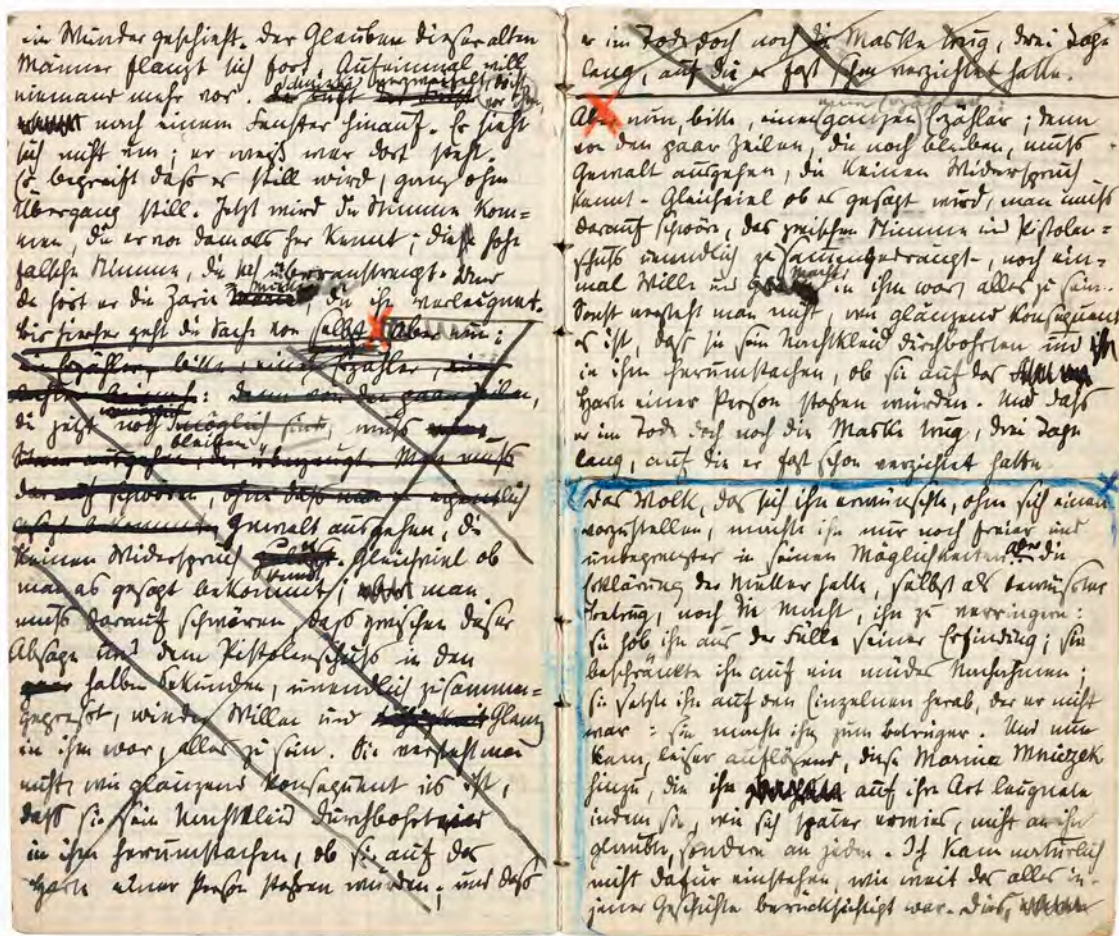 ein Wunder geschieht. Der Glauben dieser alten
Männer pflanzt sich fort. Auf einmal will
niemand mehr vor.
nach einem Fenster hinauf. Er sieht
sich nicht um; er weiß wer dort steht.
Er begreift daß es still wird, ganz ohne
Übergang still. Jetzt wird die Stimme kom=
men, die er von damals her kennt; diese hohe
falsche Stimme, die sich überanstrengt. Und
da hört er die Zarin Mutter, die ihn verleugnet.
Bis hierher geht die Sache von selbst. Aber nun:
ein Erzähler, bitte, einen Erzähler,
: denn von den paar Zeilen,
die jetzt noch möglich sind, muß
bleiben
ausgehen, die überzeugt. Man muß
darauf schwören, ohne daß man es eigentlich
gesagt bekommt, Gewalt ausgehen, die
keinen Widerspruch kennt. Gleichviel ob
man es gesagt bekommt; man
muß darauf schwören, daß zwischen dieser
Absage und dem Pistolenschuß in den
halben Sekunden, unendlich zusammen=
gepresst, wieder Willen und Glanz
in ihm war, alles zu sein. Sie versteht man
nicht, wie glänzend konsequent es ist,
daß sie sein Nachtkleid durchbohrt
in ihm herumstachen, ob sie auf das
Harte einer Person stoßen würden. und daß
er im Tode doch noch die Maske trug, drei Tage
lang, auf die er fast schon verzichtet hatte.
Aber nun, bitte, einen Erzähler, einen Erzähler: denn
von den paar Zeilen, die noch bleiben, muß
Gewalt ausgehen, die keinen Widerspruch
kennt. Gleichviel ob es gesagt wird, man muß
darauf schwören, das zwischen Stimme und Pistolen=
schuß unendlich zusammengedrängt, noch ein=
mal Wille und Macht in ihm war, alles zu sein.
Sonst versteht man nicht, wie glänzend konsequent
es ist, daß sie sein Nachtkleid durchbohrten und
in ihm herumstachen, ob sie auf das
Harte einer Person stoßen würden. Und daß
er im Tode doch noch die Maske trug, drei Tage
lang, auf die er fast schon verzichtet hatte.
Das Volk, das sich ihn erwünschte, ohne sich einen
vorzustellen, machte ihn nur noch freier und
unbegrenzter in seinen Möglichkeiten. Aber die
Erklärung der Mutter hatte, selbst als bewusster
Betrug, noch die Macht, ihn zu verringern:
sie hob ihn aus der Fülle seiner Erfindung; sie
beschränkte ihn auf ein müdes Nachahmen;
sie setzte ihn auf den Einzelnen herab, der er nicht
war: sie machte ihn zum Betrüger. Und nun
kam, leiser auflösend, diese Marina Mniczek
hinzu, die ihn auf ihre Art leugnete
indem sie, wie sich später erwies, nicht an ihn
glaubte, sondern an jeden. Ich kann natürlich
nicht dafür einstehen, wie weit das alles in
jener Geschichte berücksichtigt war. Dies,